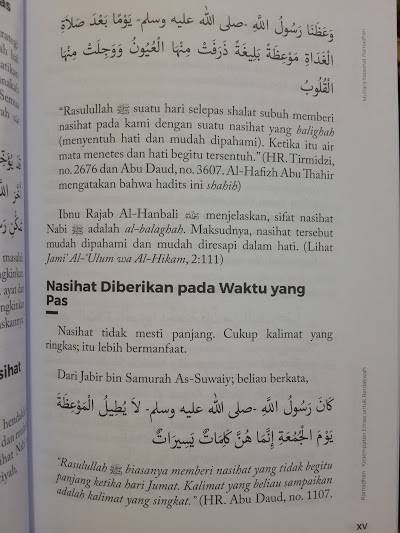 وَعَظَنَا رَسُولُ اللَّهِ -صلى الله عليه وسلم- يَوْمًا بَعْدَ صَلَاةِ
الْغَدَاةِ مَوْعِظَةً بَلِيغَةً ذَرَفَتْ مِنْهَا الْعُيُونُ وَوَجِلَتْ مِنْهَا
الْقُلُوبُ
“Rasulullah ﷺ suatu hari selepas shalat subuh memberi
nasihat pada kami dengan suatu nasihat yang balighah
(menyentuh hati dan mudah dipahami). Ketika itu air
mata menetes dan hati begitu tersentuh.” (HR. Tirmidzi,
no. 2676 dan Abu Daud, no. 3607. Al-Hafizh Abu Thahir
mengatakan bahwa hadits ini shahih)
Ibnu Rajab Al-Hanbali menjelaskan, sifat nasihat
Nabi ﷺ adalah al-balaghah. Maksudnya, nasihat tersebut
mudah dipahami dan mudah diresapi dalam hati. (Lihat
Jami’ Al-‘Ulum wa Al-Hikam, 2:111)
Nasihat Diberikan pada Waktu yang
Pas
Nasihat tidak mesti panjang. Cukup kalimat yang
ringkas; itu lebih bermanfaat.
Dari Jabir bin Samurah As-Suwaiy; beliau berkata,
كَانَ رَسُولُ اللَّهِ -صلى الله عليه وسلم- لاَ يُطِيلُ الْمَوْعِظَةَ
يَوْمَ الْجُمُعَةِ إِنَّمَا هُنَّ كَلِمَاتٌ يَسِيرَاتٌ
“Rasulullah ﷺ biasanya memberi nasihat yang tidak begitu
panjang ketika hari Jumat. Kalimat yang beliau sampaikan
adalah kalimat yang singkat.” (HR. Abu Daud, no. 1107.
XV